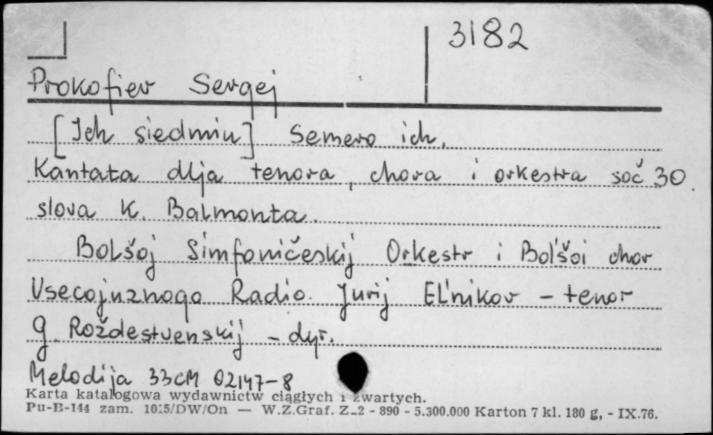 3182
Prokofiev Sergej
[Ich siedmiu] Semero ich,
Kantata dlja tenora, chora i orkestra soč 30
slova K. Balmonta.
Bolšoj Simfoničeskij Orkestr i Bol'šoi chor
Vsecojuznogo Radio. Jurij El'nikov - tenor
G. Roždestvenskij - dyr.
Melodija 33CM 02147-8
Karta katalogowa wydawnictw ciągłych i zwartych.
Pu-B-144 zam. 1015/DW/On — W.Z.Graf. Z-2 - 890 - 5.300.000 Karton 7 kl. 180 g, - IX.76.